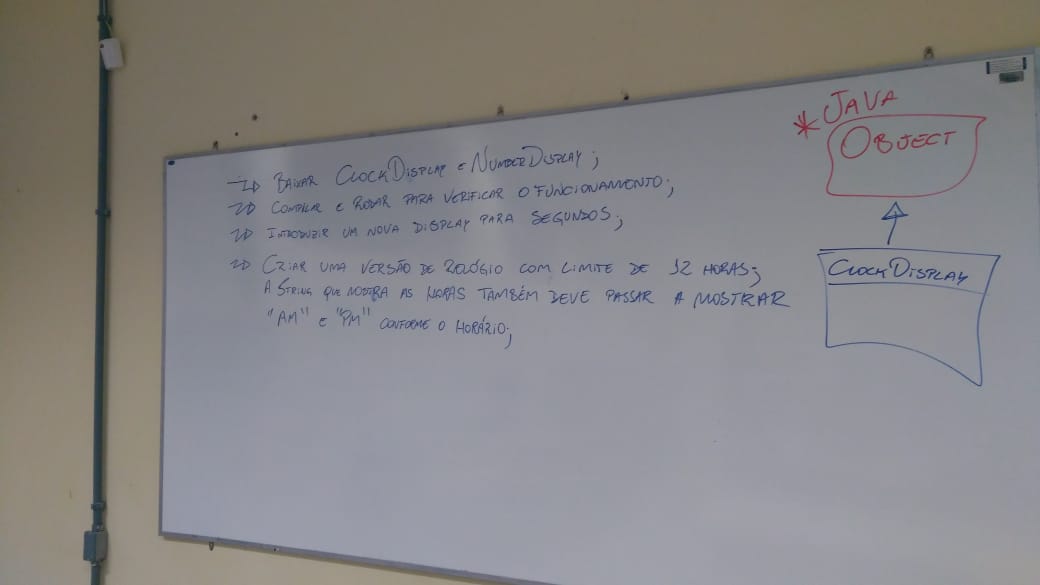 BAIXAR CLOCKDISPLAY E NUMBERDISPLAY;
COMPILAR E RODAR PARA VERIFICAR O FUNCIONAMENTO;
INTRODUZIR UM NOVA DISPLAY PARA SEGUNDOS;
CRIAR UMA VERSÃO DE RELÓGIO COM LIMITE DE 12 HORAS;
A STRING QUE MOSTRA AS HORAS TAMBÉM DEVE PASSAR A MOSTRAR
"AM" E "PM" CONFORME O HORÁRIO;
* JAVA
OBJECT
CLOCKDISPLAY